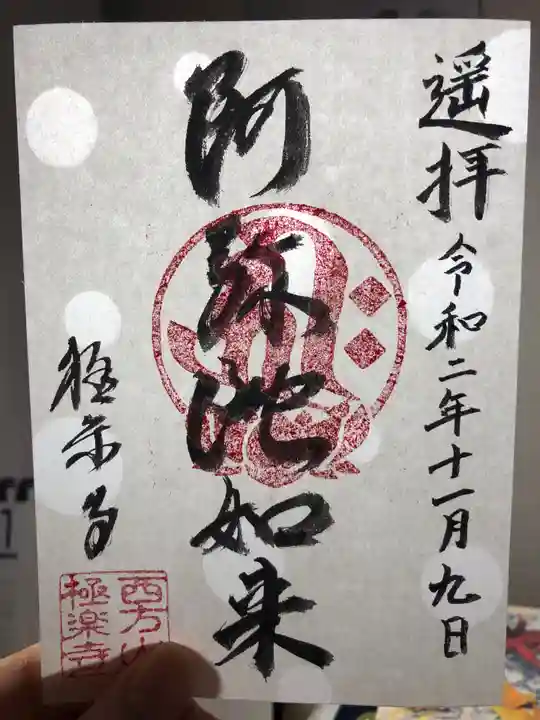 遥拝
令和二年十一月九日
阿弥陀如来
極楽寺
西方山
極楽寺